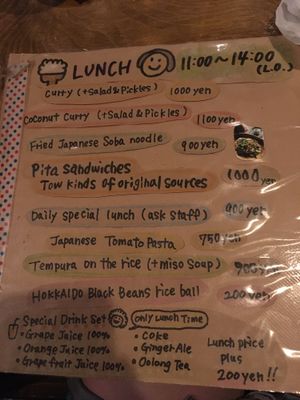 LUNCH 11:00~14:00
(L.O.)
Curry (+Salad & Pickles) 1000 yen
Coconut Curry (+Salad & Pickles) 1100 yen
Fried Japanese Soba noodle 900 yen
Pita Sandwiches
Tow kinds of original sources 1000 yen
Daily special lunch (ask staff) 900 yen
Japanese Tomato Pasta 750 yen
Tempura on the rice (+miso Soup) 900 yen
HOKKAIDO Black Beans rice ball 200 yen
Special Drink Set only Lunch Time
• Grape Juice 100% • Coke
• Orange Juice 100% • Ginger Ale
• Grapefruit Juice 100% • Oolong Tea
Lunch price
plus
200 yen!!